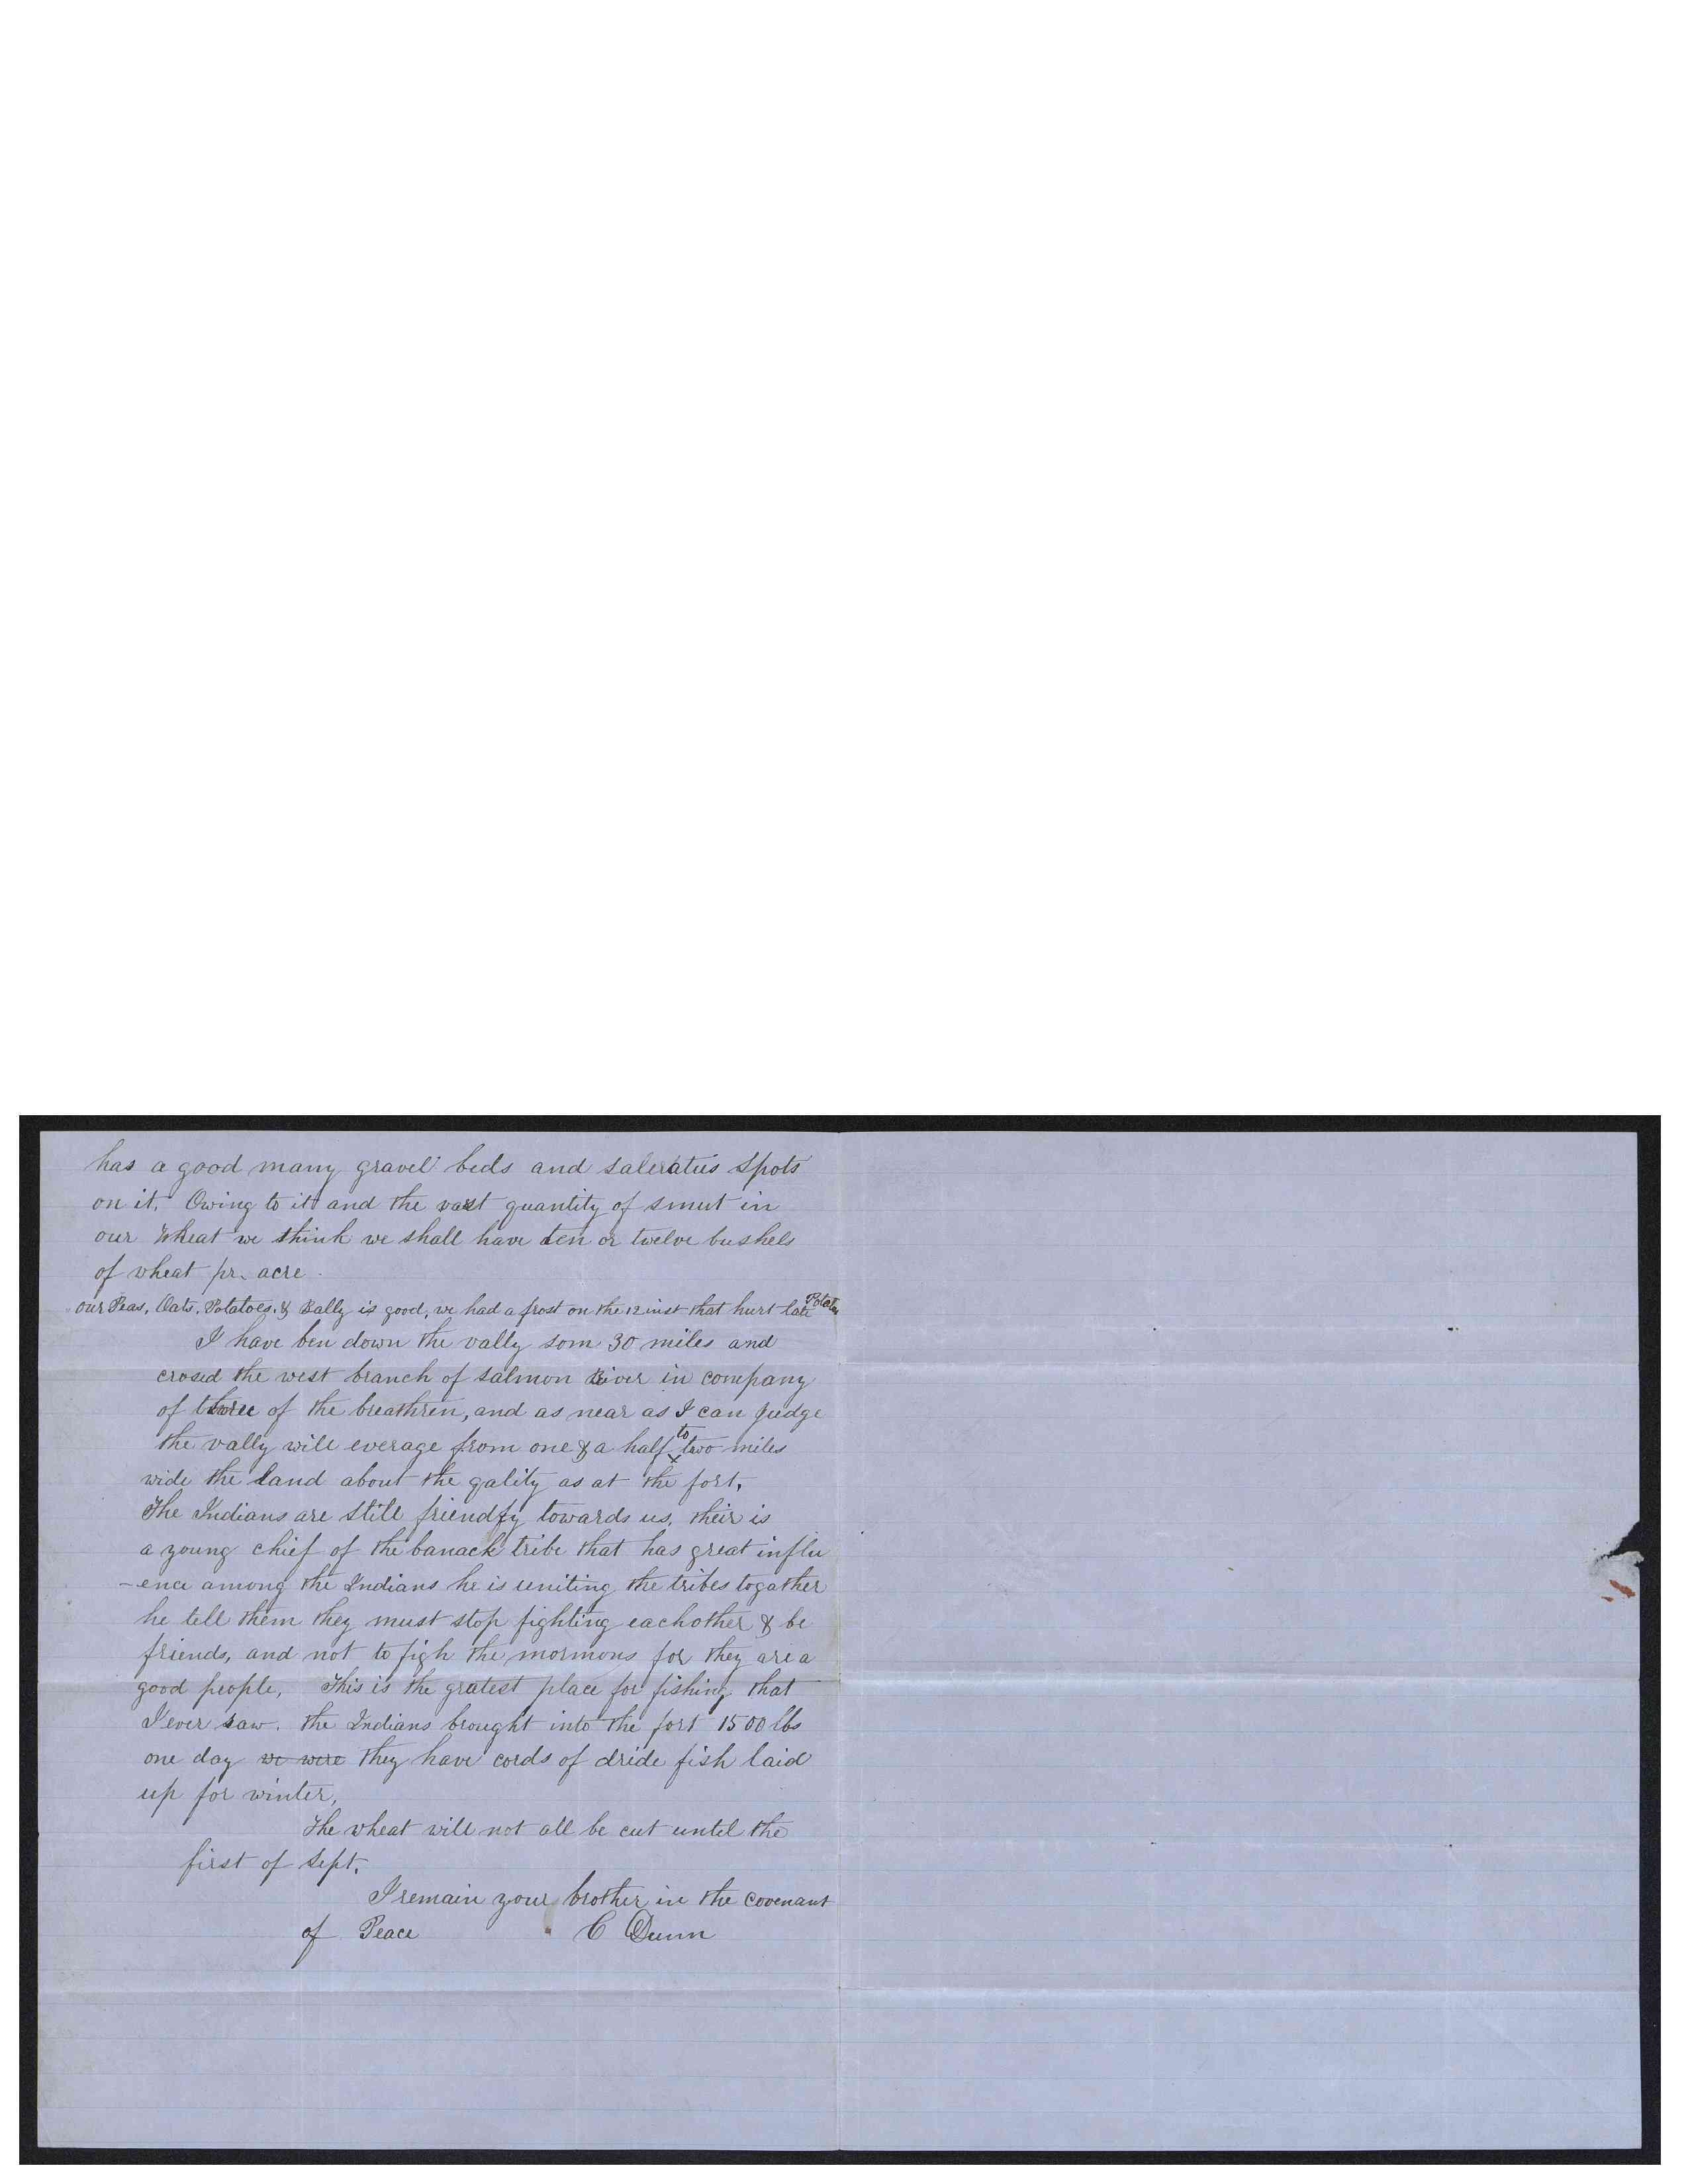 has a good many gravel beds and saleratus spots
on it. Owing to it and the vast quantity of smut in
our wheat we think we shall have ten or twelve bushels
of wheat pr. acre.
our Peas, Oats, Potatoes. & Bally is good, we had a frost on the 12 inst that hurt late Potatoes
I have ben down the vally som 30 miles and
crosed the west branch of salmon river in company
of three of the breathren, and as near as I can judge
the vally will everage from one & a half to two miles
wide the land about the qality as at the fort.
The Indians are still friendly towards us, their is
a young chief of the banack tribe that has great influ
-ence among the Indians he is uniting the tribes togather
he tell them they must stop fighting eachother & be
friends, and not to figh the mormons for they are a
good people, This is the gratest place for fishing that
I ever saw. the Indians brought into the fort 1500 lbs
one day we were they have cords of dride fish laid
up for winter,
The wheat will not all be cut until the
first of Sept.
I remain your brother in the covenant
of Peace C Dunn